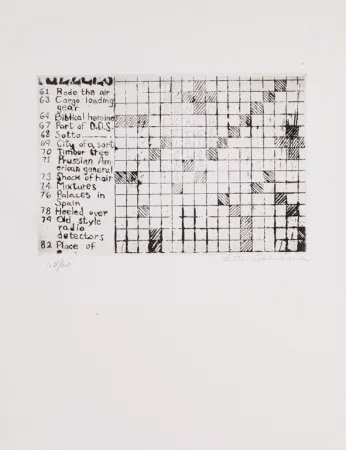 61 Rode the air
63 Cargo loading
gear
64 Biblical heroine
67 Part of D.D.S.
68 Sotto
69 City of a sort
70 Timber tree
71 Prussian Am
erican general
73 Shock of hair
74 Mixtures
76 Palaces in
Spain
78 Heeled over
79 Old style
radio
detectors
82 Place of